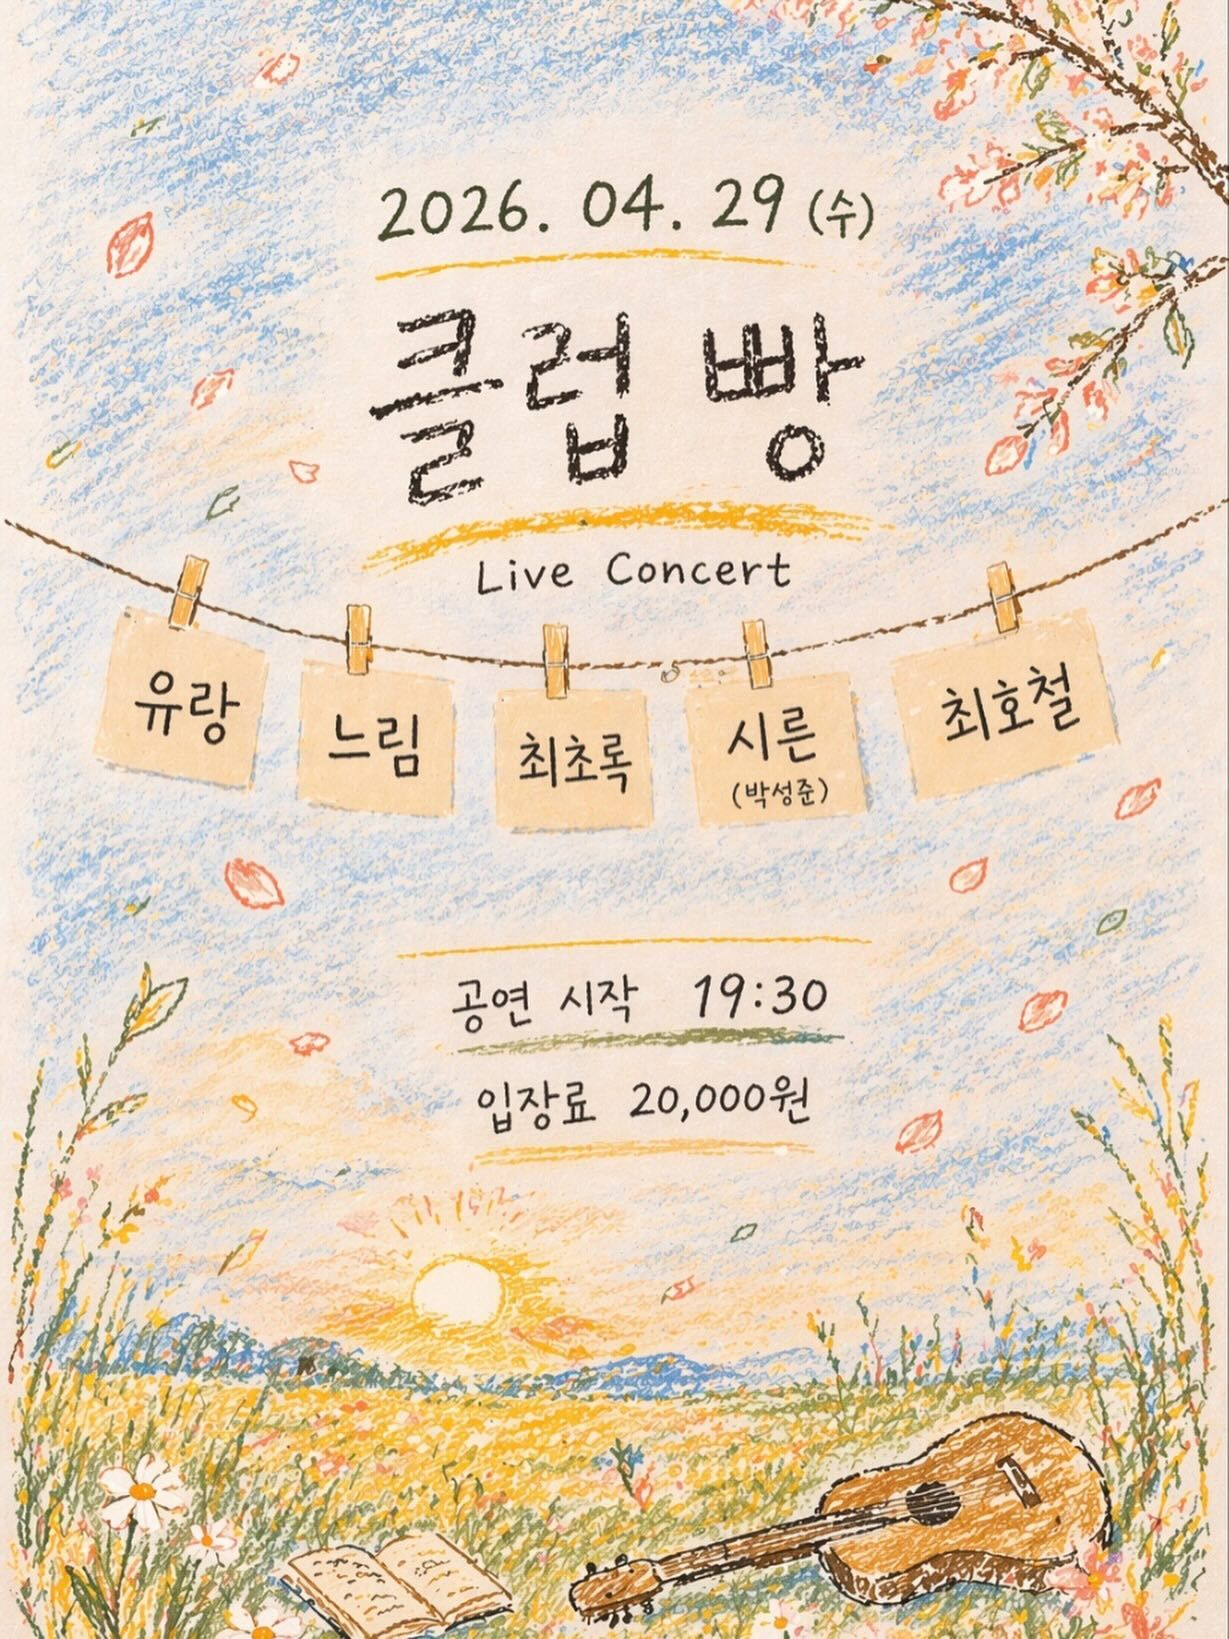 2026. 04. 29 (수)
클럽 빵
Live Concert
유랑
느림
최초록
시른
(박성준)
최호철
공연 시작 19:30
입장료 20,000원